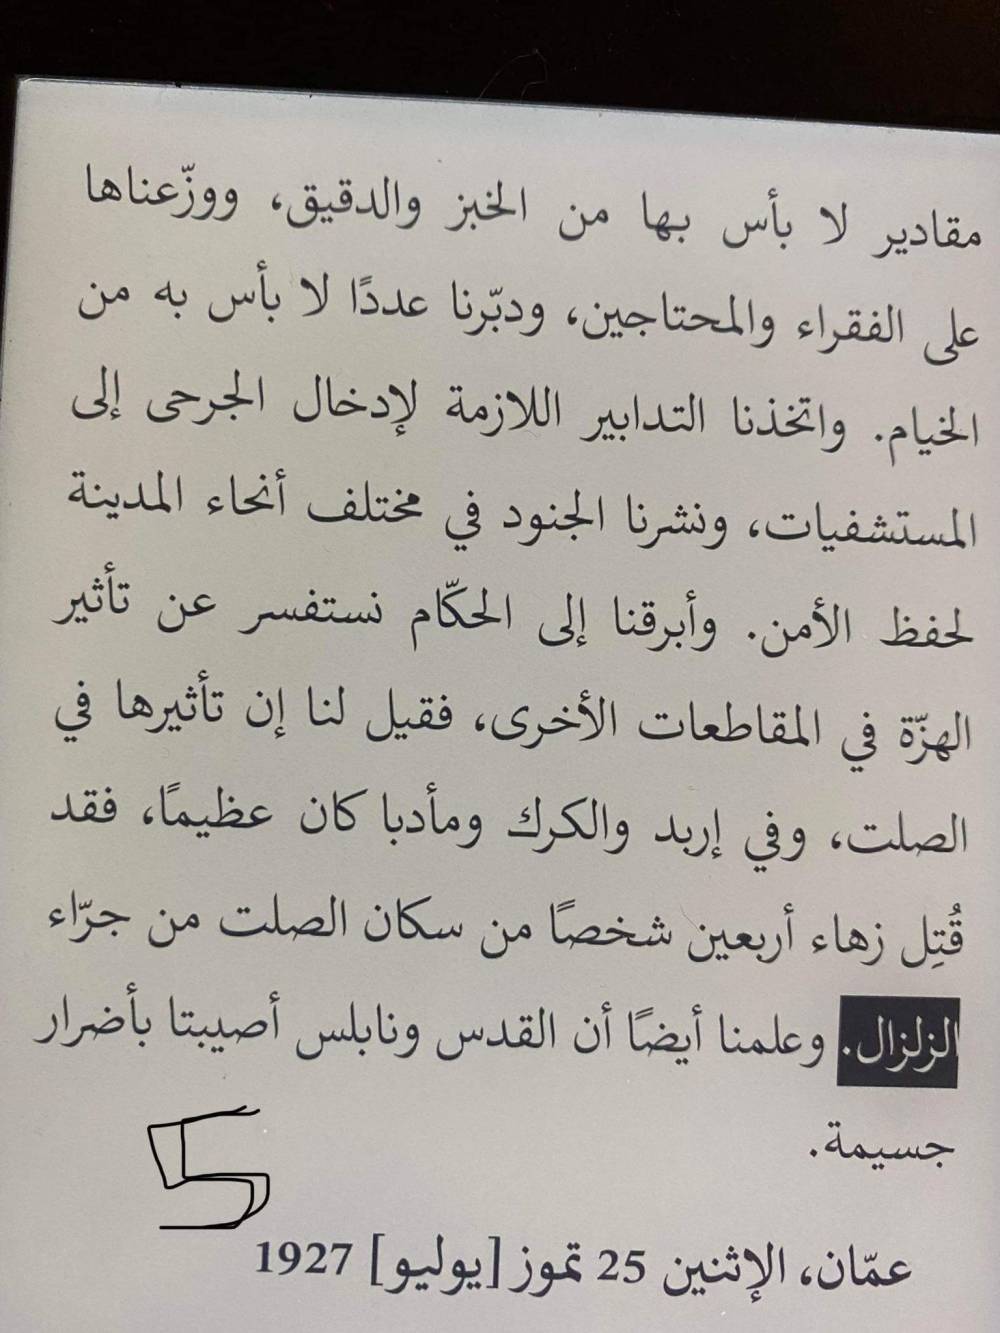 مقادير لا بأس بها من الخبز والدقيق، ووزّعناها
على الفقراء والمحتاجين، ودبّرنا عددًا لا بأس به من
الخيام. واتخذنا التدابير اللازمة لإدخال الجرحى إلى
المستشفيات، ونشرنا الجنود في مختلف أنحاء المدينة
لحفظ الأمن. وأبرقنا إلى الحكّام نستفسر عن تأثير
الهزّة في المقاطعات الأخرى، فقيل لنا إن تأثيرها في
الصلت، وفي إربد والكرك ومأدبا كان عظيمًا، فقد
قُتِل زهاء أربعين شخصًا من سكان الصلت من جرّاء
الزلزال. وعلمنا أيضًا أن القدس ونابلس أصيبتا بأضرار
جسيمة.
5
عمّان، الإثنين 25 تموز [يوليو] 1927